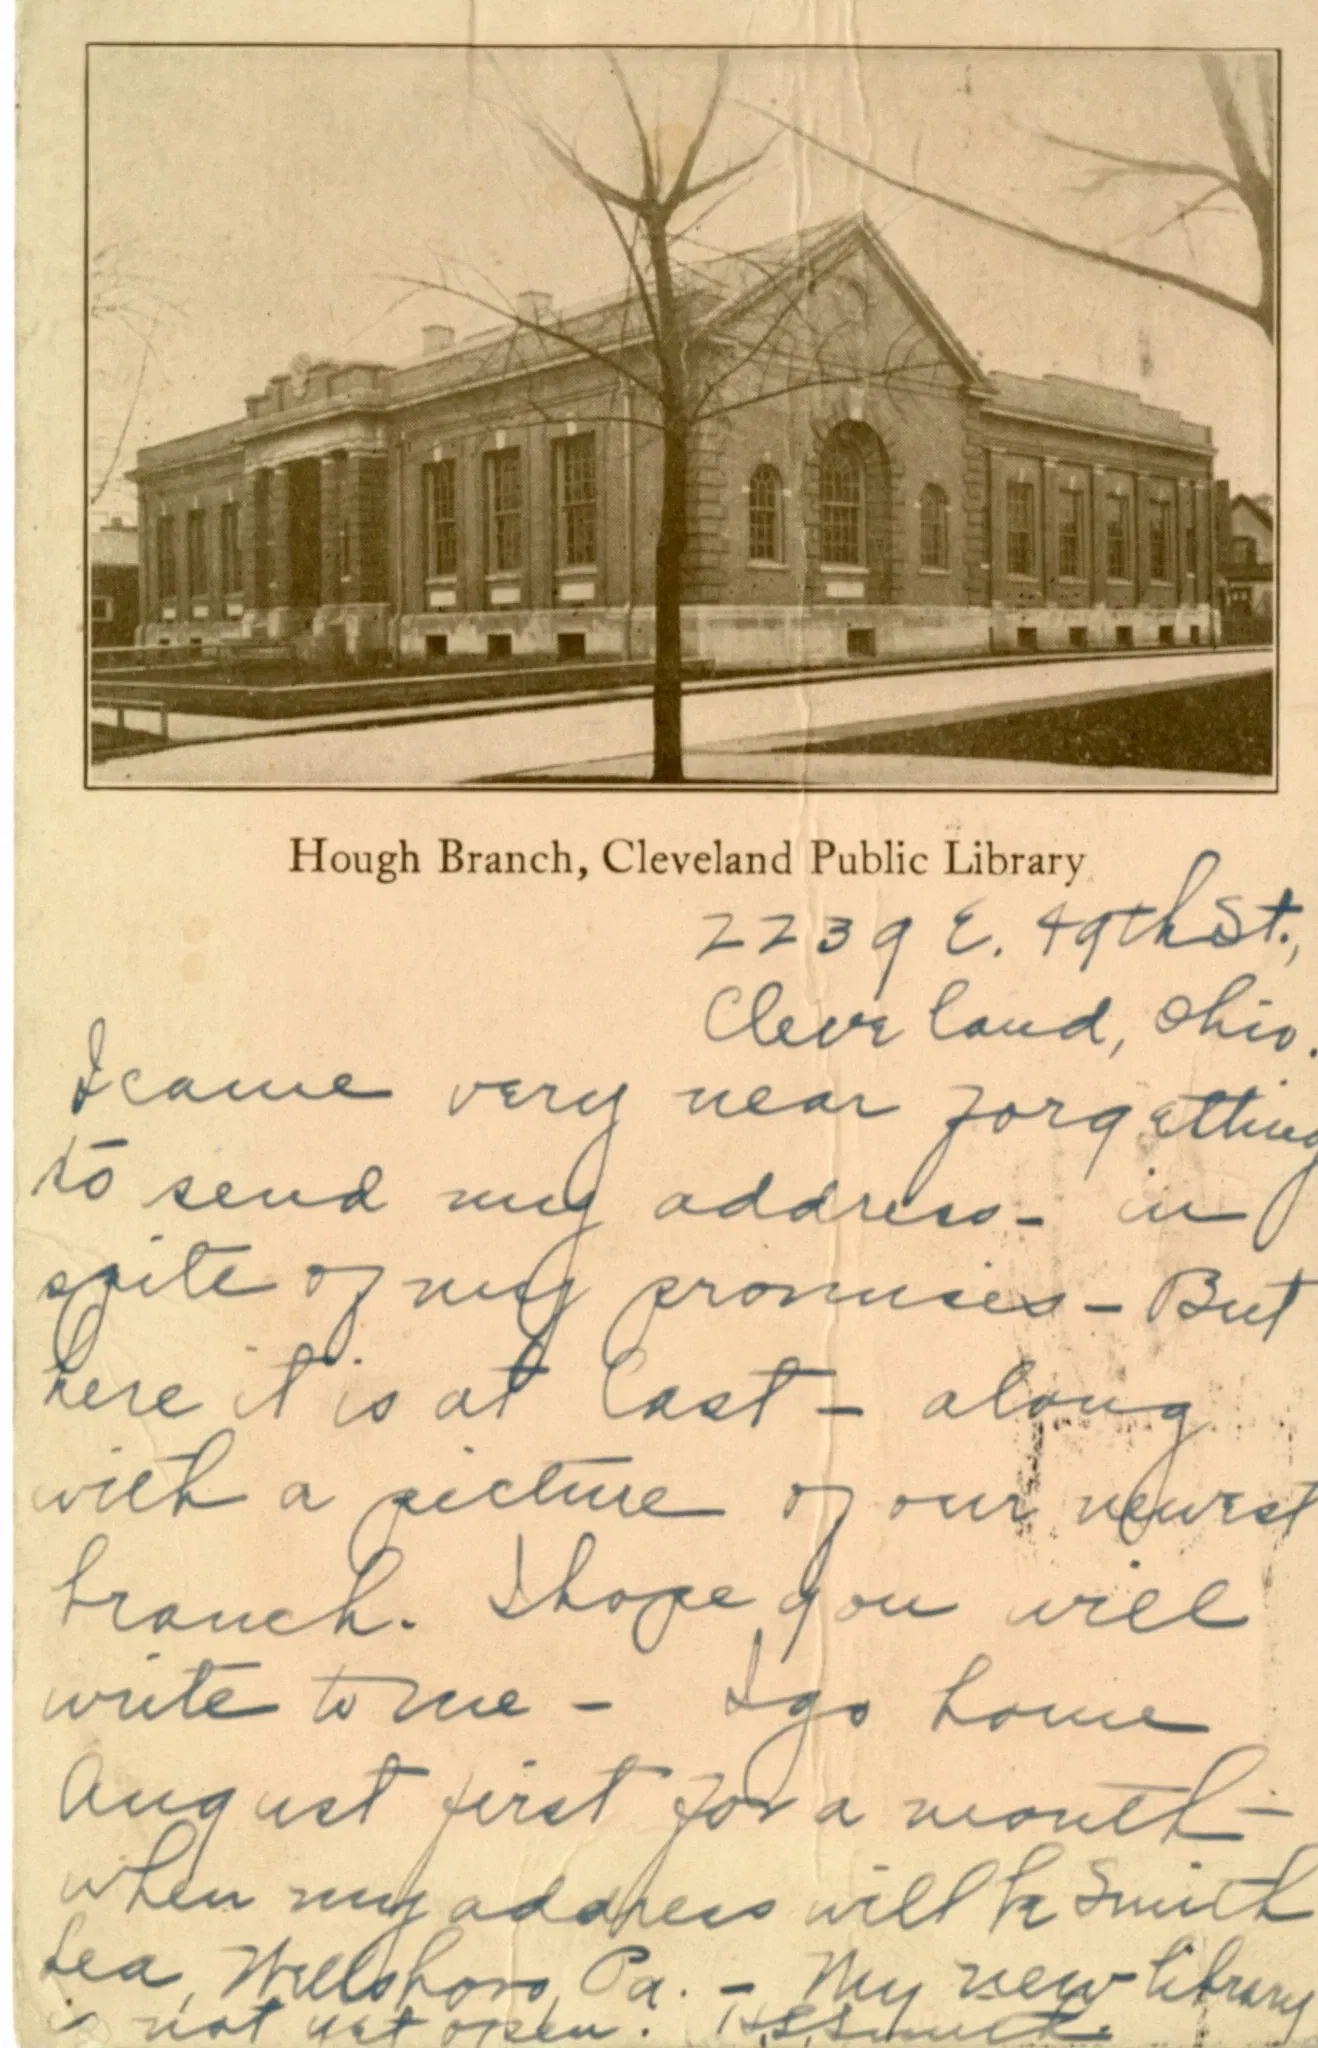 Hough Branch, Cleveland Public Library
2239 E. 49th St.,
Cleveland, Ohio.
I came very near forgetting
to send my address - in
spite of my promises - But
here it is at last - along
with a picture of our newest
branch. I hope you will
write to me - I go home
August first for a month -
when my address will be Smith
Lea, Wellsboro, Pa. - My new library
is not yet open. Smith.